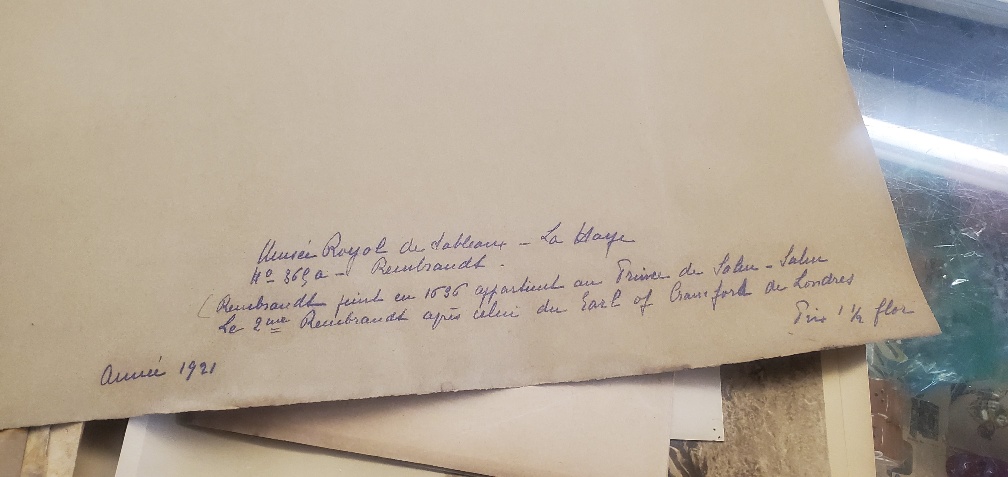 Musée Royal de tableaux - La Haye
No 365a - Rembrandt.
(Rembrandt peint en 1636 appartient au Prince de Salm-Salm
Le 2me Rembrandt après celui du Earl of Crawford de Londres
Prix 1 ½ flor
Année 1921